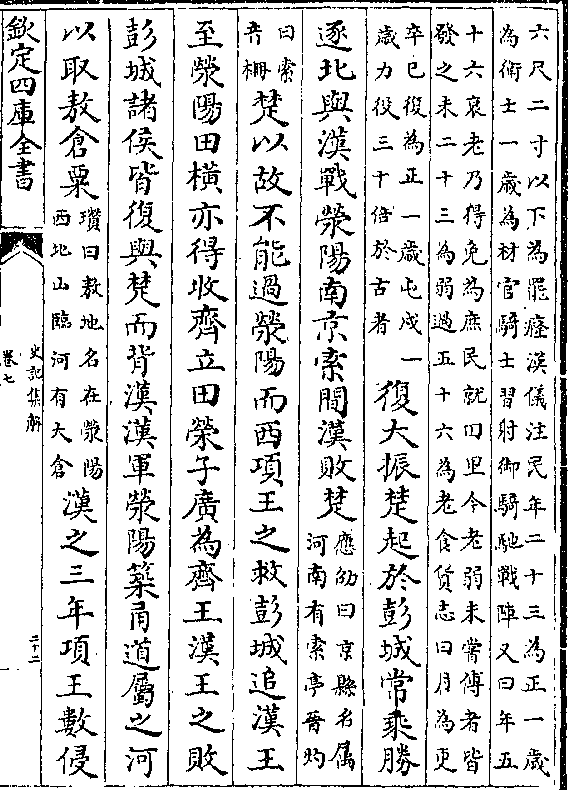 六尺二寸以下為罷癃漢儀注民年二十三為正一歲
為衛士一歲為材官騎士習射御騎馳戰陣又曰年五
十六衰老乃得免為庶民就田里今老弱未嘗傅者皆
發之未二十三為弱過五十六為老食貨志曰月為更
卒已復為正一歲屯戍一
歲力役三十倍於古者
復大振楚起於彭城常乗勝
逐北與漢戰滎陽南京索間漢敗楚
應劭曰京縣名屬
河南有索亭晉灼
曰索
音柵
楚以故不能過滎陽而西項王之救彭城追漢王
至滎陽田横亦得收齊立田榮子廣為齊王漢王之敗
彭城諸侯皆復與楚而背漢漢軍滎陽築甬道屬之河
以取敖倉粟
瓚曰敖地名在滎陽
西北山臨河有大倉
漢之三年項王數侵
欽定四庫全書
史記集解
卷七
二十二